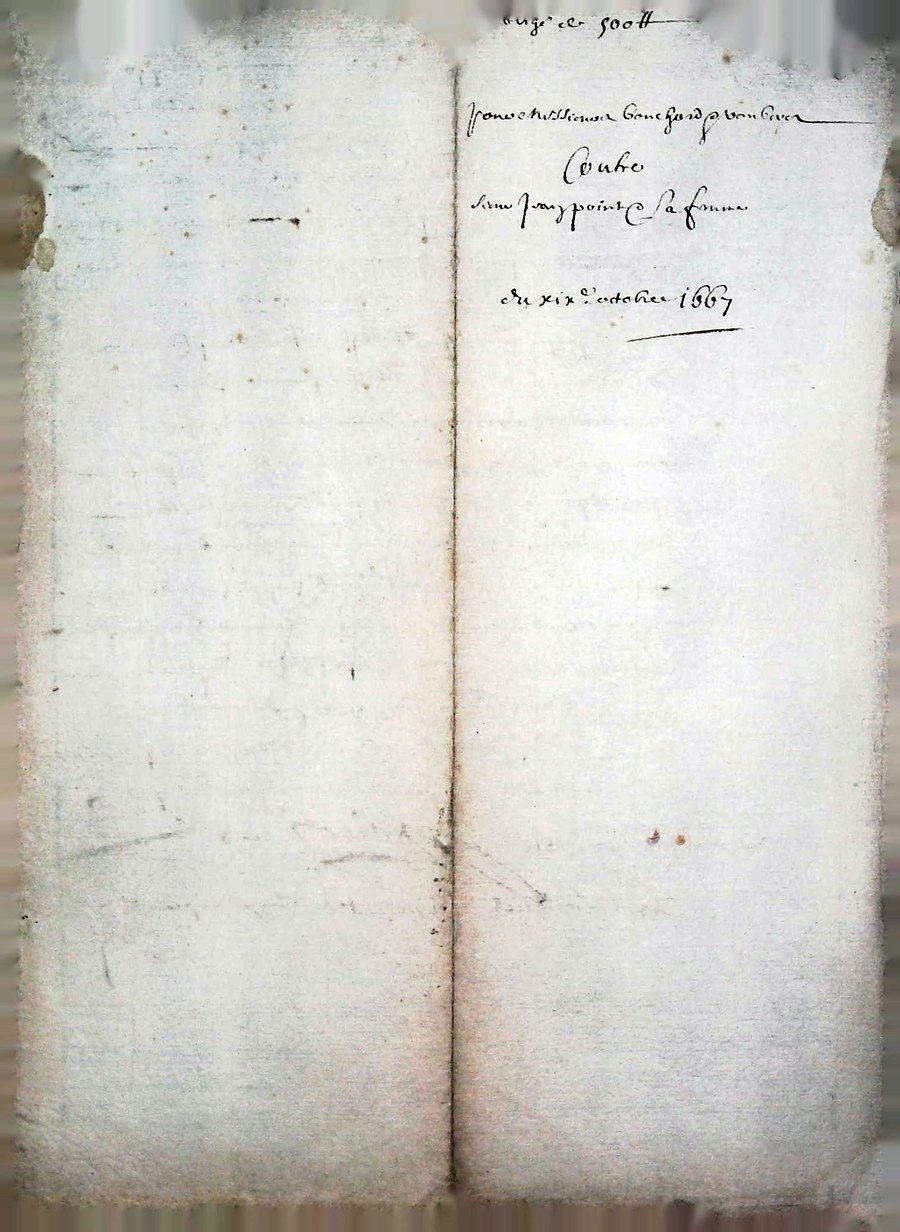 de 500 ₶
pour Messieurs bouchard &
Contre
Jean point & sa femme
du xixe octobre 1667